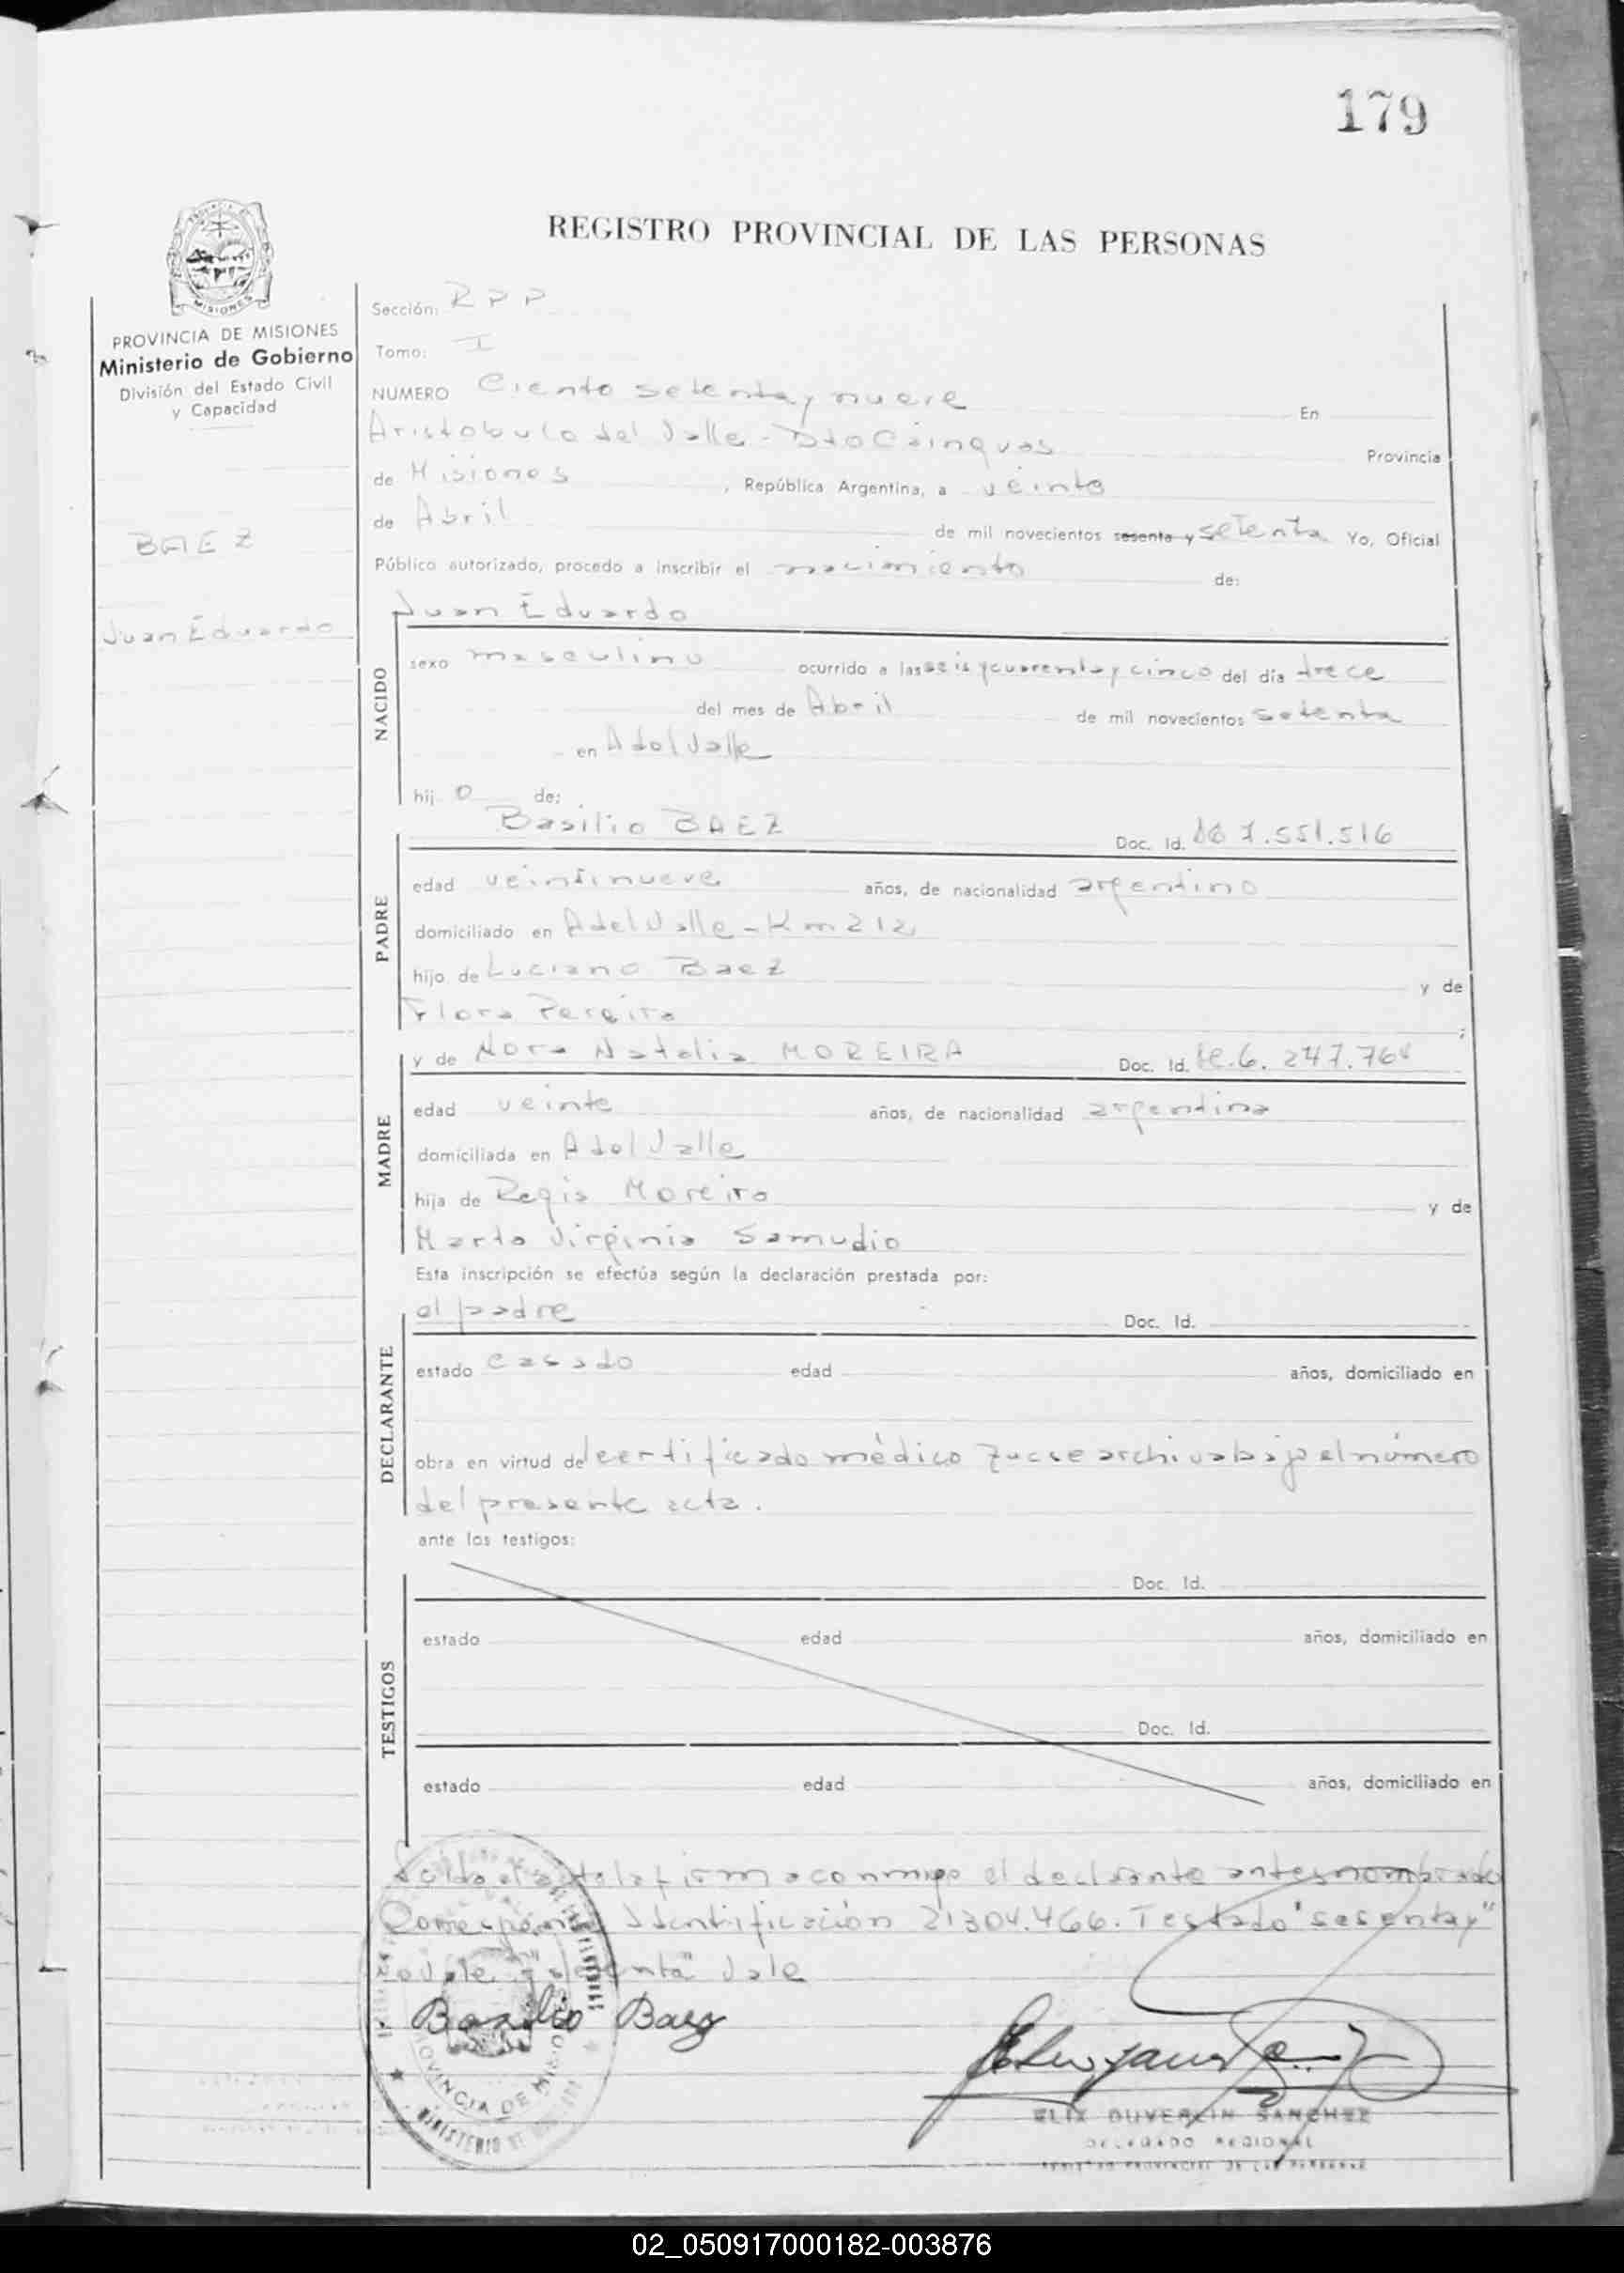 179
REGISTRO PROVINCIAL DE LAS PERSONAS
MISIONES
PROVINCIA DE MISIONES
Ministerio de Gobierno
División del Estado Civil
y Capacidad
BAEZ
Juan Eduardo
Sección: RPP
Tomo: I
NUMERO Ciento setenta y nueve En
Aristobulo del Valle - Dto Cainguas Provincia
de Misiones, República Argentina, a veinte
de Abril de mil novecientos sesenta y setenta Yo, Oficial
Público autorizado, procedo a inscribir el nacimiento de:
Juan Eduardo
NACIDO
sexo masculino ocurrido a las seis y cuarenta y cinco del día trece
del mes de Abril de mil novecientos setenta
en A del Valle
hij o de:
Basilio BAEZ Doc. Id. 7.551.516
PADRE
edad veintinueve años, de nacionalidad argentino
domiciliado en A del Valle - Km 212
hijo de Luciano Baez y de
Flora Pereira ;
y de Nora Natalia MOREIRA Doc. Id. 6.247.768
MADRE
edad veinte años, de nacionalidad argentina
domiciliada en A del Valle
hija de Regis Moreira y de
Marta Virginia Samudio
Esta inscripción se efectúa según la declaración prestada por:
el padre Doc. Id.
DECLARANTE
estado casado edad años, domiciliado en
obra en virtud del certificado médico que se archiva bajo el número
del presente acta.
ante los testigos:
Doc. Id.
TESTIGOS
estado edad años, domiciliado en
Doc. Id.
estado edad años, domiciliado en
Leida el acta la firma conmigo el declarante antes nombrado
Identificación 21304.466. Testado "sesenta y"
no vale "setenta" Vale
Basilio Baez
PROVINCIA DE MISIONES
MINISTERIO DE
ELIX DUVERLIN SANCHEZ
DELEGADO REGIONAL
REGISTRO PROVINCIAL DE LAS PERSONAS
02_050917000182-003876